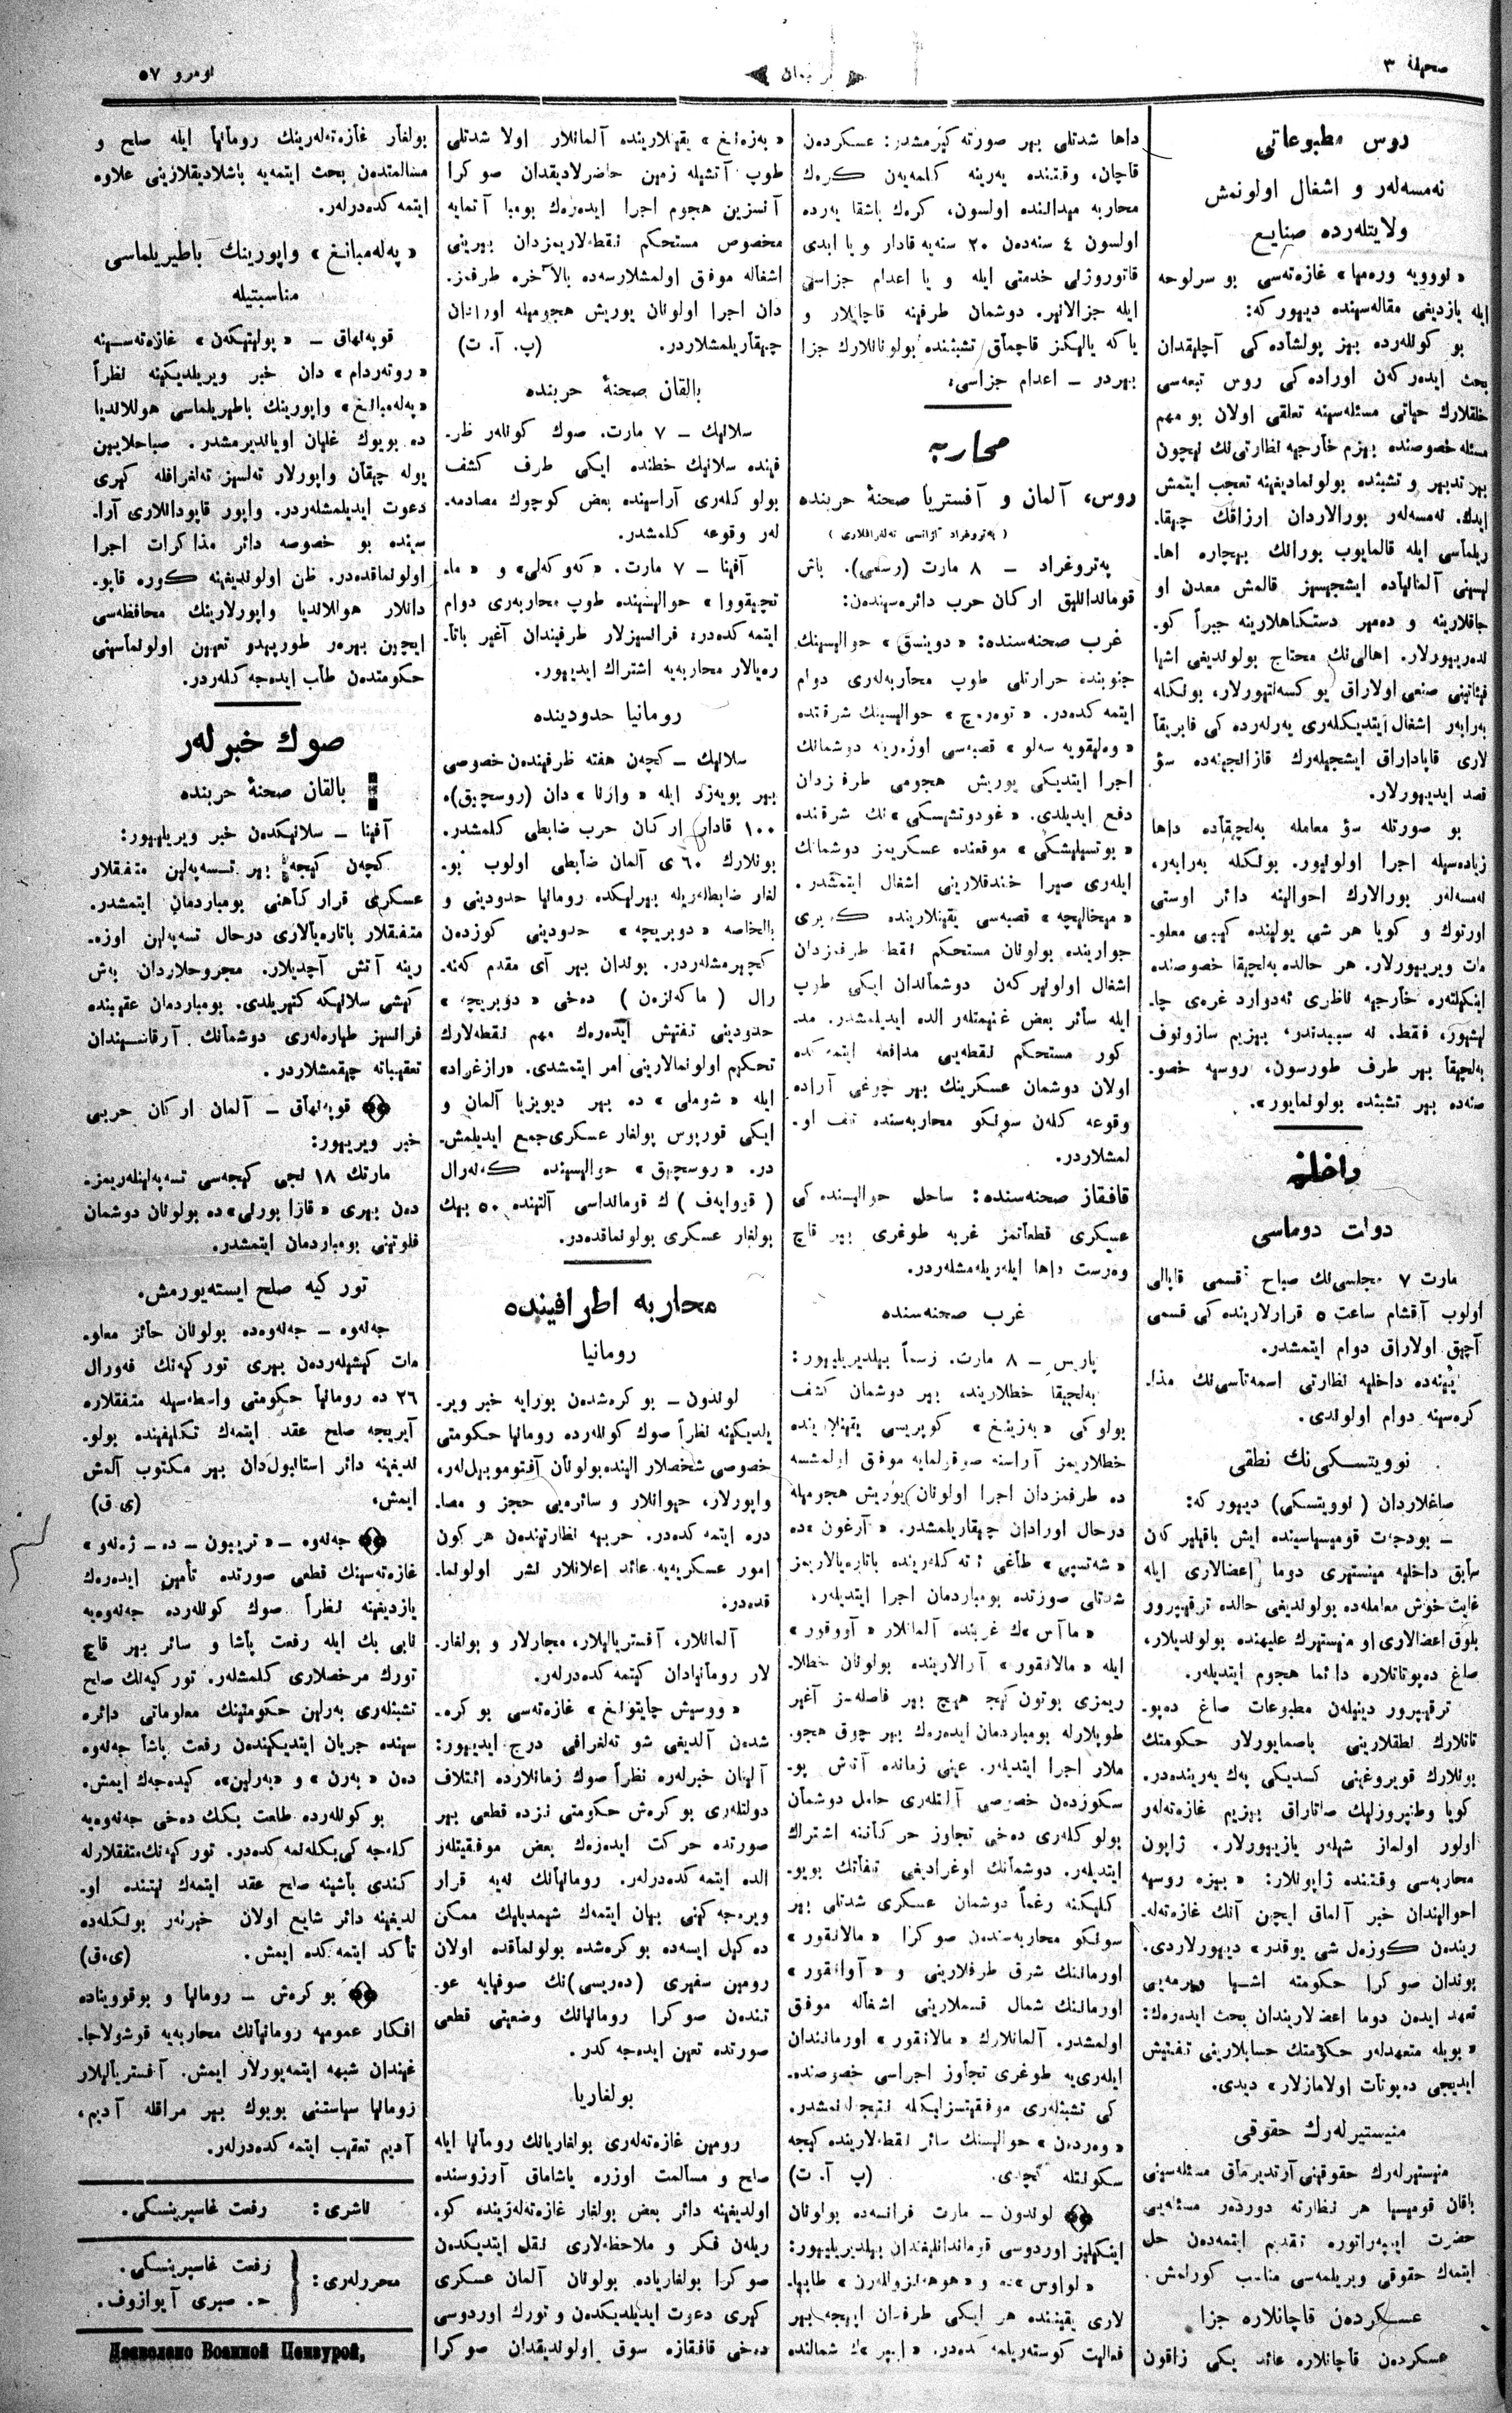 صحیفه ۳
ترجمان
نومرو ۵۷
روس مطبوعاتی
نەمسەلەر و اشغال اولونمش
ولایتلەردە صنایع
« نوویە ورەمیا » غازەتەسی بو سرلوحە
ایلە یازدیغی مقالەسیندە دییور کە:
بو کونلەردە بیز پولشادە کی آچلیقدان
بحث ایدەرکەن اورادە کی روس تبعەسی
خلقلارك حیاتی مسئلەسینە تعلقی اولان بو مهم
مسئلە خصوصندە بیزم خارجیە نظارتی نك نیچون
بیر تدبیر و تشبثدە بولونمادیغینە تعجب ایتمش
ایدك. نەمسەلەر بورالاردان ارزاقك چیقا-
ریلماسی ایلە قالمایوب بورانك بیچارە اها-
لیسنی آلمانیادە ایشچیسز قالمش معدن او
جاقلارینە و دەمیر دستکاهلارینە جبراً کو-
ندەرییورلار. اهالی نك محتاج بولوندیغی اشیا
فیئاتینی صنعی اولاراق یوکسەلتیورلار، بونکلە
بەرابەر اشغال ایتدیکلەری یەرلەردە کی فابریقا
لاری قاپاداراق ایشچیلەرك قازانجینەدە سؤ
قصد ایدییورلار.
بو صورتلە سؤ معاملە بەلچیقادە داها
زیادەسیلە اجرا اولونیور. بونکلە بەرابەر،
نەمسەلەر بورالارك احوالینە دائر اوستی
اورتوك و کویا هر شی یولیندە کیبی معلو-
مات ویرییورلار. هر حالدە بەلچیقا خصوصندە
اینکیلتەرە خارجیە ناظری ئەدوارد غرەی چا-
لیشیور، فقط، نە سببدندر، بیزیم سازونوف
بەلچیقا بیر طرف طورسون، روسیە خصو-
صندە بیر تشبثدە بولونمایور».
داخلیه
دولت دوماسی
مارت ۷ مجلسی نك صباح قسمی قاپالی
اولوب آقشام ساعت ۵ قرارلاریندە کی قسمی
آچیق اولاراق دوام ایتمشدر.
یینەدە داخلیە نظارتی اسمەتاسی نك مذا-
کرەسینە دوام اولوندی.
نوویتسکی نك نطقی
صاغلاردان ( نوویتسکی ) دییور کە:
– بودجەت قومیسیاسیندە ایش باقیلیر کەن
سابق داخلیە مینستیری دوما اعضالاری ایلە
غایت خوش معاملەدە بولوندیغی حالدە ترقیپرور
بلوق اعضالاری او منیستیرك علیهندە بولوندیلار،
صاغ دەپوتاتلارە دائما هجوم ایتدیلەر.
ترقیپرور دینیلەن مطبوعات صاغ دەپو-
تاتلارك نطقلارینی باصمایورلار حکومتك
بونلارك قویروغینی کسدیکی یەك یەریندەدر.
کویا وطنپروزلیك صاتاراق بیزیم غازەتەلەر
اولور اولماز شیلەر یازییورلار. ژاپون
محاربەسی وقتندە ژاپونلار: « بیزە روسیە
احوالیندان خبر آلماق ایچین آنك غازەتەلە-
ریندەن کوزەل شی یوقدر» دییورلاردی.
بوندان صوکرا حکومتە اشیا ویرمەیی
تعهد ایدەن دوما اعضالاریندان بحث ایدەرەك:
« بویلە متعهدلەر حکومتك حسابلارینی تفتیش
ایدیجی دەپوتات اولامازلار» دیدی.
منیستیرلەرك حقوقی
منیستیرلەرك حقوقینی آرتدیرماق مسئلەسینی
باقان قومیسیا هر نظارتە دوردەر مسئلەیی
حضرت ایمپەراتورە تقدیم ایتمەدەن حل
ایتمەك حقوقی ویریلمەسی مناسب کورلمش.
عسکردەن قاچانلارە جزا
عسکردەن قاچانلارە عائد یکی زاقون
داها شدتلی بیر صورتە کیرمشدر: عسکردەن
قاچان، وقتندە یەرینە کلمەیەن کرەك
محاربە میدانندە اولسون، کرەك باشقا یەردە
اولسون ٤ سنەدەن ۲۰ سنەیە قادار ویا ابدی
قاتورزلی خدمتی ایلە و یا اعدام جزاسی
ایلە جزالانیر. دوشمان طرفینە قاچانلار و
یاکە یالیکز قاچماق تشبثندە بولونانلارك جزا
بیردر – اعدام جزاسی.
محاربه
روس، آلمان و آفستریا صحنۀ حربندە
( پەتروغراد آژانسی تەلغرافلاری )
پەتروغراد – ۸ مارت (رسمی). باش
قوماندانلیق ارکان حرب دائرەسیندەن:
غرب صحنەسندە: « دوینسق » حوالیسینك
جنوبندە حرارتلی طوپ محاربەلەری دوام
ایتمەکدەدر. « توەرچ » حوالیسینك شرقندە
« وەلیقویە سەلو » قصبەسی اوزەرینە دوشمانك
اجرا ایتدیکی یوریش هجومی طرفمزدان
دفع ایدیلدی. « غودوتشیسکی » نك شرقندە
« بوتسیلیشکی » موقعندە عسکریمز دوشمانك
ایلەری صیرا خندقلارینی اشغال ایتمشدر.
« میخالیچە » قصبەسی یقینلاریندە کوپری
جواریندە بولونان مستحکم نقطە طرفمزدان
اشغال اولونیرکەن دوشماندان ایکی طوپ
ایلە سائر بعض غنیمتلەر الدە ایدیلمشدر. مذ-
کور مستحکم نقطەیی مدافعە ایتمەکدە
اولان دوشمان عسکرینك بیر چوغی آرادە
وقوعە کلەن سونکو محاربەسندە تلف او-
لمشلاردر.
قافقاز صحنەسندە: ساحل حوالیسندە کی
عسکری قطعاتمز غربە طوغری بیر قاچ
وەرست داها ایلەریلەمشلەردر.
غرب صحنەسندە
پاریس – ۸ مارت. رسماً بیلدیریلییور:
بەلچیقا خطلاریندە بیر دوشمان کشف
بولوکی « بەزینغ » کوپریسی یقینلاریندە
خطلاریمز آراسنە صوقولمایە موفق اولمشسە
دە طرفمزدان اجرا اولونان یوریش هجومیلە
درحال اورادان چیقاریلمشدر. « آرغون » دە
« شەتسپی » طاغی ئەتەکلەریندە باتارەیالاریمز
شدتلی صورتدە بومباردمان اجرا ایتدیلەر.
« مااس » ك غربندە آلمانلار « آووقور »
ایلە « مالانقور » آرالاریندە بولونان خطلا-
ریمزی بوتون کیجە هیچ بیر فاصلەسز آغیر
طوپلارلە بومباردمان ایدەرەك بیر چوق هجو-
ملار اجرا ایتدیلەر. عینی زماندە آتش پو-
سکورەن خصوصی آلتلەری حامل دوشمان
بولوکلەری دەخی تجاوز حرکاتنە اشتراك
ایتدیلەر. دوشمانك اوغرادیغی تلفاتك بویو-
کلیکنە رغماً دوشمان عسکری شدتلی بیر
سونکو محاربەسندەن صوکرا « مالانقور »
اورمانینك شرق طرفلارینی و « آوانقور »
اورمانینك شمال قسملارینی اشغالە موفق
اولمشدر. آلمانلارك « مالانقور » اورمانندان
ایلەری یە طوغری تجاوز اجراسی خصوصندە
کی تشبثلەری موفقیتسزلیکلە نتیجەلنمشدر.
« وەردەن » حوالیسنك سائر نقطەلاریندە کیجە
سکونتلە کچدی. (پ. آ. ت)
لوندون – مارت فرانسەدە بولونان
اینکیلیز اوردوسی قوماندانلیغندان بیلدیریلییور:
لاری یقینندە هر ایکی طرفدان ایپجە بیر
فعالیت کوستەریلمەکدەدر. « ایپر » ك شمالندە
« بەزەنغ » یقینلاریندە آلمانلار اولا شدتلی
طوپ آتشیلە زمین حاضرلادیقدان صوکرا
آنسزین هجوم اجرا ایدەرەك بومبا آتمایە
مخصوص مستحکم نقطەلاریمزدان بیرینی
اشغالە موفق اولمشلارسەدە بالآخرە طرفمز-
دان اجرا اولونان یوریش هجومیلە اورادان
چیقاریلمشلاردر. (پ. آ. ت)
بالقان صحنۀ حربندە
سلانیك – ۷ مارت. صوك کونلەر ظر-
فیندە سلانیك خطندە ایکی طرف کشف
بولوکلەری آراسیندە بعض کوچوك مصادمە-
لەر وقوعە کلمشدر.
آفینا – ۷ مارت. « کەوکەلی » و « ما-
تچیقووا » حوالیسیندە طوپ محاربەری دوام
ایتمەکدەدر، فرانسیزلار طرفیندان آغیر باتا-
رەیالار محاربەیە اشتراك ایدییور.
رومانیا حدودیندە
سلانیك – کچەن هفتە ظرفیندەن خصوصی
بیر پویەزد ایلە « وارنا » دان (روسچیق)ە
۱۰۰ قادار ارکان حرب ضابطی کلمشدر.
بونلارك ۶۰ ی آلمان ضابطی اولوب بو-
لغار ضابطلەریلە بیرلیکدە رومانیا حدودینی و
بالخاصە « دوبریچە » حدودینی کوزدەن
کچیرمشلەردر. بوندان بیر آی مقدم کەنە-
رال ( ماکەنزەن ) دەخی « دوبریچە »
حدودینی تفتیش ایدەرەك مهم نقطەلارك
تحکیم اولونمالارینی امر ایتمشدی. « رازغراد »
ایلە « شوملی » دە بیر دیویزیا آلمان و
ایکی قورپوس بولغار عسکری جمع ایدیلمش-
در. « روسچیق » حوالیسیندە کەنەرال
ك قومانداسی آلتیندە ۵۰ بیك
بولغار عسکری بولونماقدەدر.
محاربه اطرافیندە
رومانیا
لوندون – بوکرەشدەن بورایە خبر ویر-
یلدیکینە نظراً صوك کونلەردە رومانیا حکومتی
خصوصی شخصلار الیندە بولونان آفتوموبیل لەر،
واپورلار، حیوانلار و سائرەیی حجز و مصا-
درە ایتمەکدەدر. حربیە نظارتیندەن هر کون
امور عسکریەیە عائد اعلانلار نشر اولونما-
قدەدر.
آلمانلار، آفستریالیلار، مجارلار و بولغار-
لار رومانیادان کیتمەکدەدرلەر.
« ووسیش چایتونغ » غازەتەسی بوکرە-
شدەن آلدیغی شو تەلغرافی درج ایدییور:
آلینان خبرلەرە نظراً صوك زمانلاردە ائتلاف
دولتلەری بوکرەش حکومتی نزدە قطعی بیر
صورتدە حرکت ایدەرەك بعض موفقیتلەر
الدە ایتمەکدەدرلەر. رومانیانك نەیە قرار
ویرەجەکینی بیان ایتمەك شیمدیلیك ممکن
دەکیل ایسەدە بوکرەشدە بولونماقدە اولان
رومین سفیری (دەریسی) نك صوفیایە عو-
تندەن صوکرا رومانیانك وضعیتی قطعی
صورتدە تعین ایدەجەکدر.
بولغاریا
رومین غازەتەلەری بولغاریانك رومانیا ایلە
صلح و مسالمت اوزرە یاشاماق آرزوسندە
اولدیغینە دائر بعض بولغار غازەتەلەریندە کو-
ریلەن فکر و ملاحظەلاری نقل ایتدیکدەن
صوکرا بولغاریادە بولونان آلمان عسکری
کیری دعوت ایدیلدیکدەن و تورك اوردوسی
دەخی قافقازە سوق اولوندیقدان صوکرا
بولغار غازەتەلەرینك رومانیا ایلە صلح و
مسالمتدەن بحث ایتمەیە باشلادیقلارینی علاوە
ایتمەکدەدرلەر.
« پەلەمبانغ » واپورینك باطیریلماسی
مناسبتیلە
قوپەنهاق – « پولیتیکەن » غازەتەسینە
« روتەردام » دان خبر ویریلدیکینە نظراً
« پەلەمبانغ » واپورینك باطیریلماسی هوللاندیا
دە بویوك غلیان اویاندیرمشدر. صباحلایین
یولە چیقان واپورلار تەلسیز تەلغرافلە کیری
دعوت ایدیلمشلەردر. واپور قاپودانلاری آرا-
سیندە بو خصوصە دائر مذاکرات اجرا
اولونماقدەدر. ظن اولوندیغینە کورە قاپو-
دانلار هوللاندیا واپورلارینك محافظەسی
ایچین بیرەر طورپیدو تعیین اولونماسینی
حکومتدەن طلب ایدەجەکلەردر.
صوك خبرلەر
بالقان صحنۀ حربندە
آفینا – سلانیکدەن خبر ویریلییور:
کچەن کیجە بیر تسەپەلین متفقلار
عسکری قرارکاهنی بومباردمان ایتمشدر.
متفقلار باتارەیالاری درحال تسەپەلین اوزە-
رینە آتش آچدیلار. مجروحلاردان بەش
کیشی سلانیکە کتیریلدی. بومباردمان عقبیندە
فرانسیز طیارەلەری دوشمانك آرقاسیندان
تعقیباتە چیقمشلاردر.
قوپەنهاق – آلمان ارکان حربی
خبر ویرییور:
مارتك ۱۸ نجی کیجەسی تسەپەلینلەریمز-
دەن بیری « قازا بورلی » دە بولونان دوشمان
فلوتینی بومباردمان ایتمشدر.
تورکیە صلح ایستەیورمش.
جەنەوە – جەنەوەدە بولونان حائز معلو-
مات کیشیلەردەن بیری تورکیەنك فەورال
۲۶ دە رومانیا حکومتی واسطەسیلە متفقلارە
آیریجە صلح عقد ایتمەك تکلیفیندە بولو-
ندیغینە دائر استانبول دان بیر مکتوب آلمش
ایمش. (ی ق)
جەنەوە – « تریبون – دە – ژەنەو »
غازەتەسینك قطعی صورتدە تأمین ایدەرەك
یازدیغینە نظراً صوك کونلەردە جەنەوەیە
نابی بك ایلە رفعت پاشا و سائر بیر قاچ
تورك مرخصلاری کلمشلەر. تورکیەنك صلح
تشبثلەری بەرلین حکومتینك معلوماتی دائرە
سیندە جریان ایتدیکیندەن رفعت پاشا جەنەوە
دەن « بەرن » و « بەرلین » ە کیدەجەك ایمش.
بو کونلەردە طلعت بکك دەخی جەنەوەیە
کلەجەکی بکلەنمەکدەدر. تورکیەنك متفقلارلە
کندی باشینە صلح عقد ایتمەك نیتندە او-
لدیغینە دائر شایع اولان خبرلەر بونکلەدە
تأکد ایتمەکدە ایمش. (ی.ق)
بوکرەش – رومانیا و بوقووینادە
افکار عمومیە رومانیانك محاربەیە قوشولاجا-
غیندان شبهە ایتمەیورلار ایمش. آفستریالیلار
رومانیا سیاستنی بویوك بیر مراقلە آدیم،
آدیم تعقیب ایتمەکدەدرلەر.
ناشری: رفعت غاسپرینسکی.
محررلەری: رفعت غاسپرینسکی.
ح. صبری آیوازوف.
Дозволено Военной Цензурой,